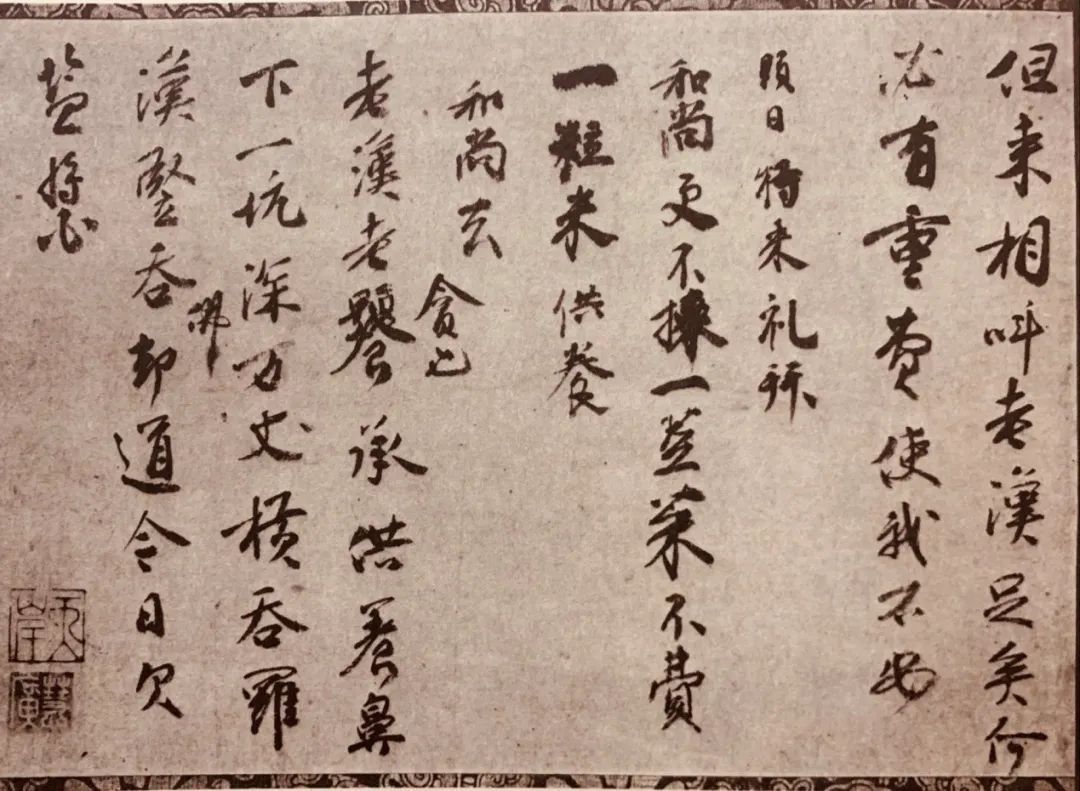 但来相叫老漢足矣何
必有重費使我不安
須日特来礼拜
和尚更不採一莖菜不費
一粒米供養
和尚去
貪也
老漢老饕承供養鼻
下一坑深万丈横吞羅
漢竪吞佛却道今日欠
盐